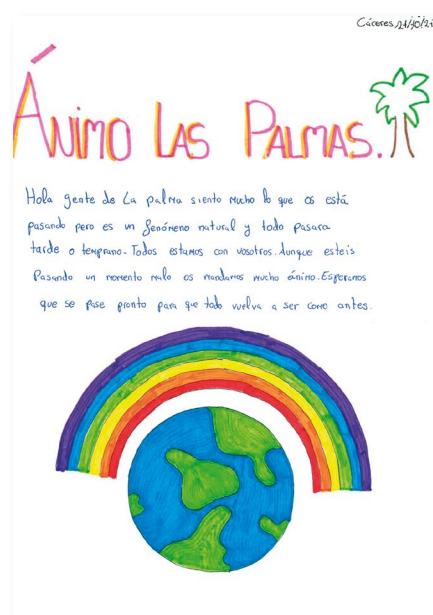 Cáceres 21/10/21
Ánimo Las Palmas.
Hola gente de La palma siento mucho lo que os está
pasando pero es un fenómeno natural y todo pasara
tarde o temprano. Todos estamos con vosotros. Aunque esteis
Pasando un momento malo os mandamos mucho ánimo. Esperamos
que se pase pronto para que todo vuelva a ser como antes.